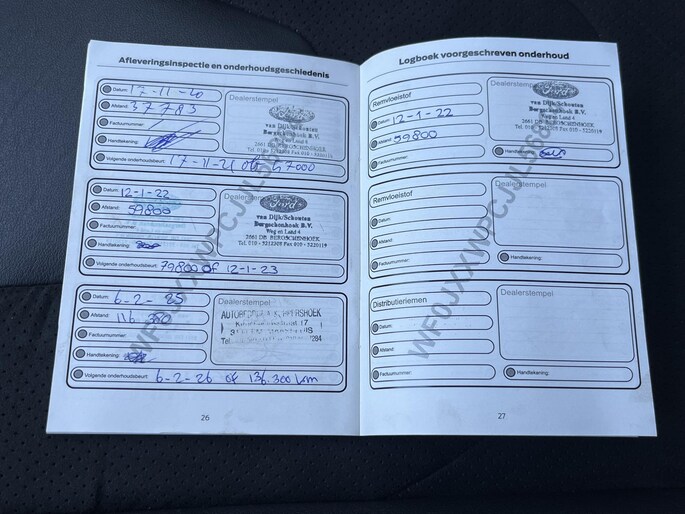 Afleveringsinspectie en onderhoudsgeschiedenis
Datum: 17-11-20
Afstand: 37783
Factuurnummer:
Handtekening:
Dealerstempel
Ford
van Dijk/Schouten
Bergschenhoek B.V.
Volgende onderhoudsbeurt: 17-11-21 of
Datum: 12-1-22
Afstand: 59800
Factuurnummer:
Handtekening:
Dealerstempel
Ford
van Dijk/Schouten
Bergschenhoek B.V.
Weg en Land 4
2661 DB BERGSCHENHOEK
Tel. 010 - 5212208 Fax 010 - 5220119
Volgende onderhoudsbeurt: 79800 of 12-1-23
Datum: 6-2-25
Afstand: 116.300
Factuurnummer:
Handtekening:
Dealerstempel
Volgende onderhoudsbeurt: 6-2-26 of 136.300 km
26
Logboek voorgeschreven onderhoud
Remvloeistof
Datum: 12-1-22
Afstand: 59800
Factuurnummer:
Dealerstempel
Ford
van Dijk/Schouten
Bergschenhoek B.V.
Weg en Land 4
2661 DB BERGSCHENHOEK
Handtekening:
Remvloeistof
Datum:
Afstand:
Factuurnummer:
Dealerstempel
Handtekening:
Distributieriemen
Datum:
Afstand:
Factuurnummer:
Dealerstempel
Handtekening:
27